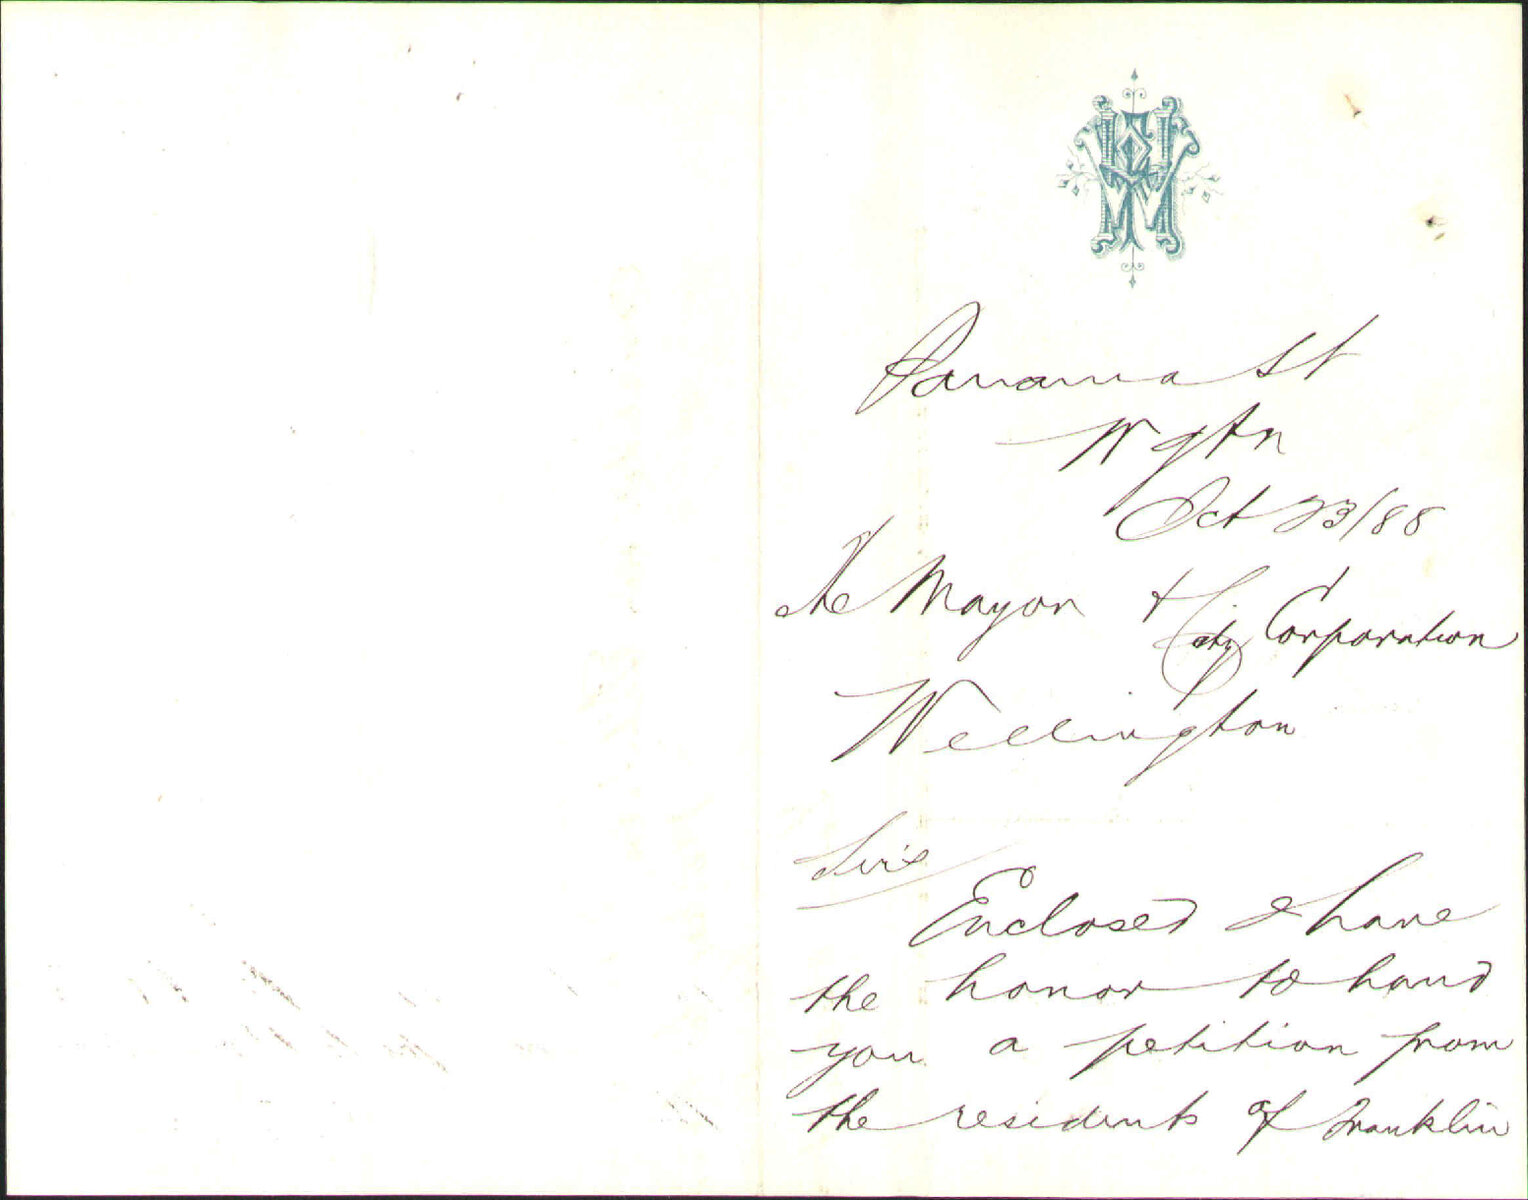 Panama St
Wgtn
Oct 23/88
The Mayor & City Corporation
Wellington
Sirs
Enclosed I have
the honor to hand
you a petition from
the residents of Franklin